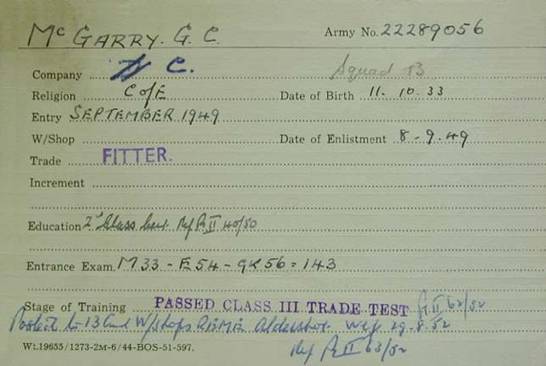 Mc GARRY. G. C. Army No. 22289056
Company C. Squad B
Religion C of E Date of Birth 11. 10. 33
Entry SEPTEMBER 1949
W/Shop Date of Enlistment 8-9-49
Trade FITTER.
Increment
Education 2nd Class Cert. Ref Pt II 40/50
Entrance Exam. M33 - E54 - GK56 = 143
Stage of Training PASSED CLASS III TRADE TEST Pt II 62/52
Posted to 13 Cmd W/Shops REME Aldershot. wef 29.8.52
Wt.19655/1273-2M-6/44-BOS-51-597. Ref Pt II 63/52